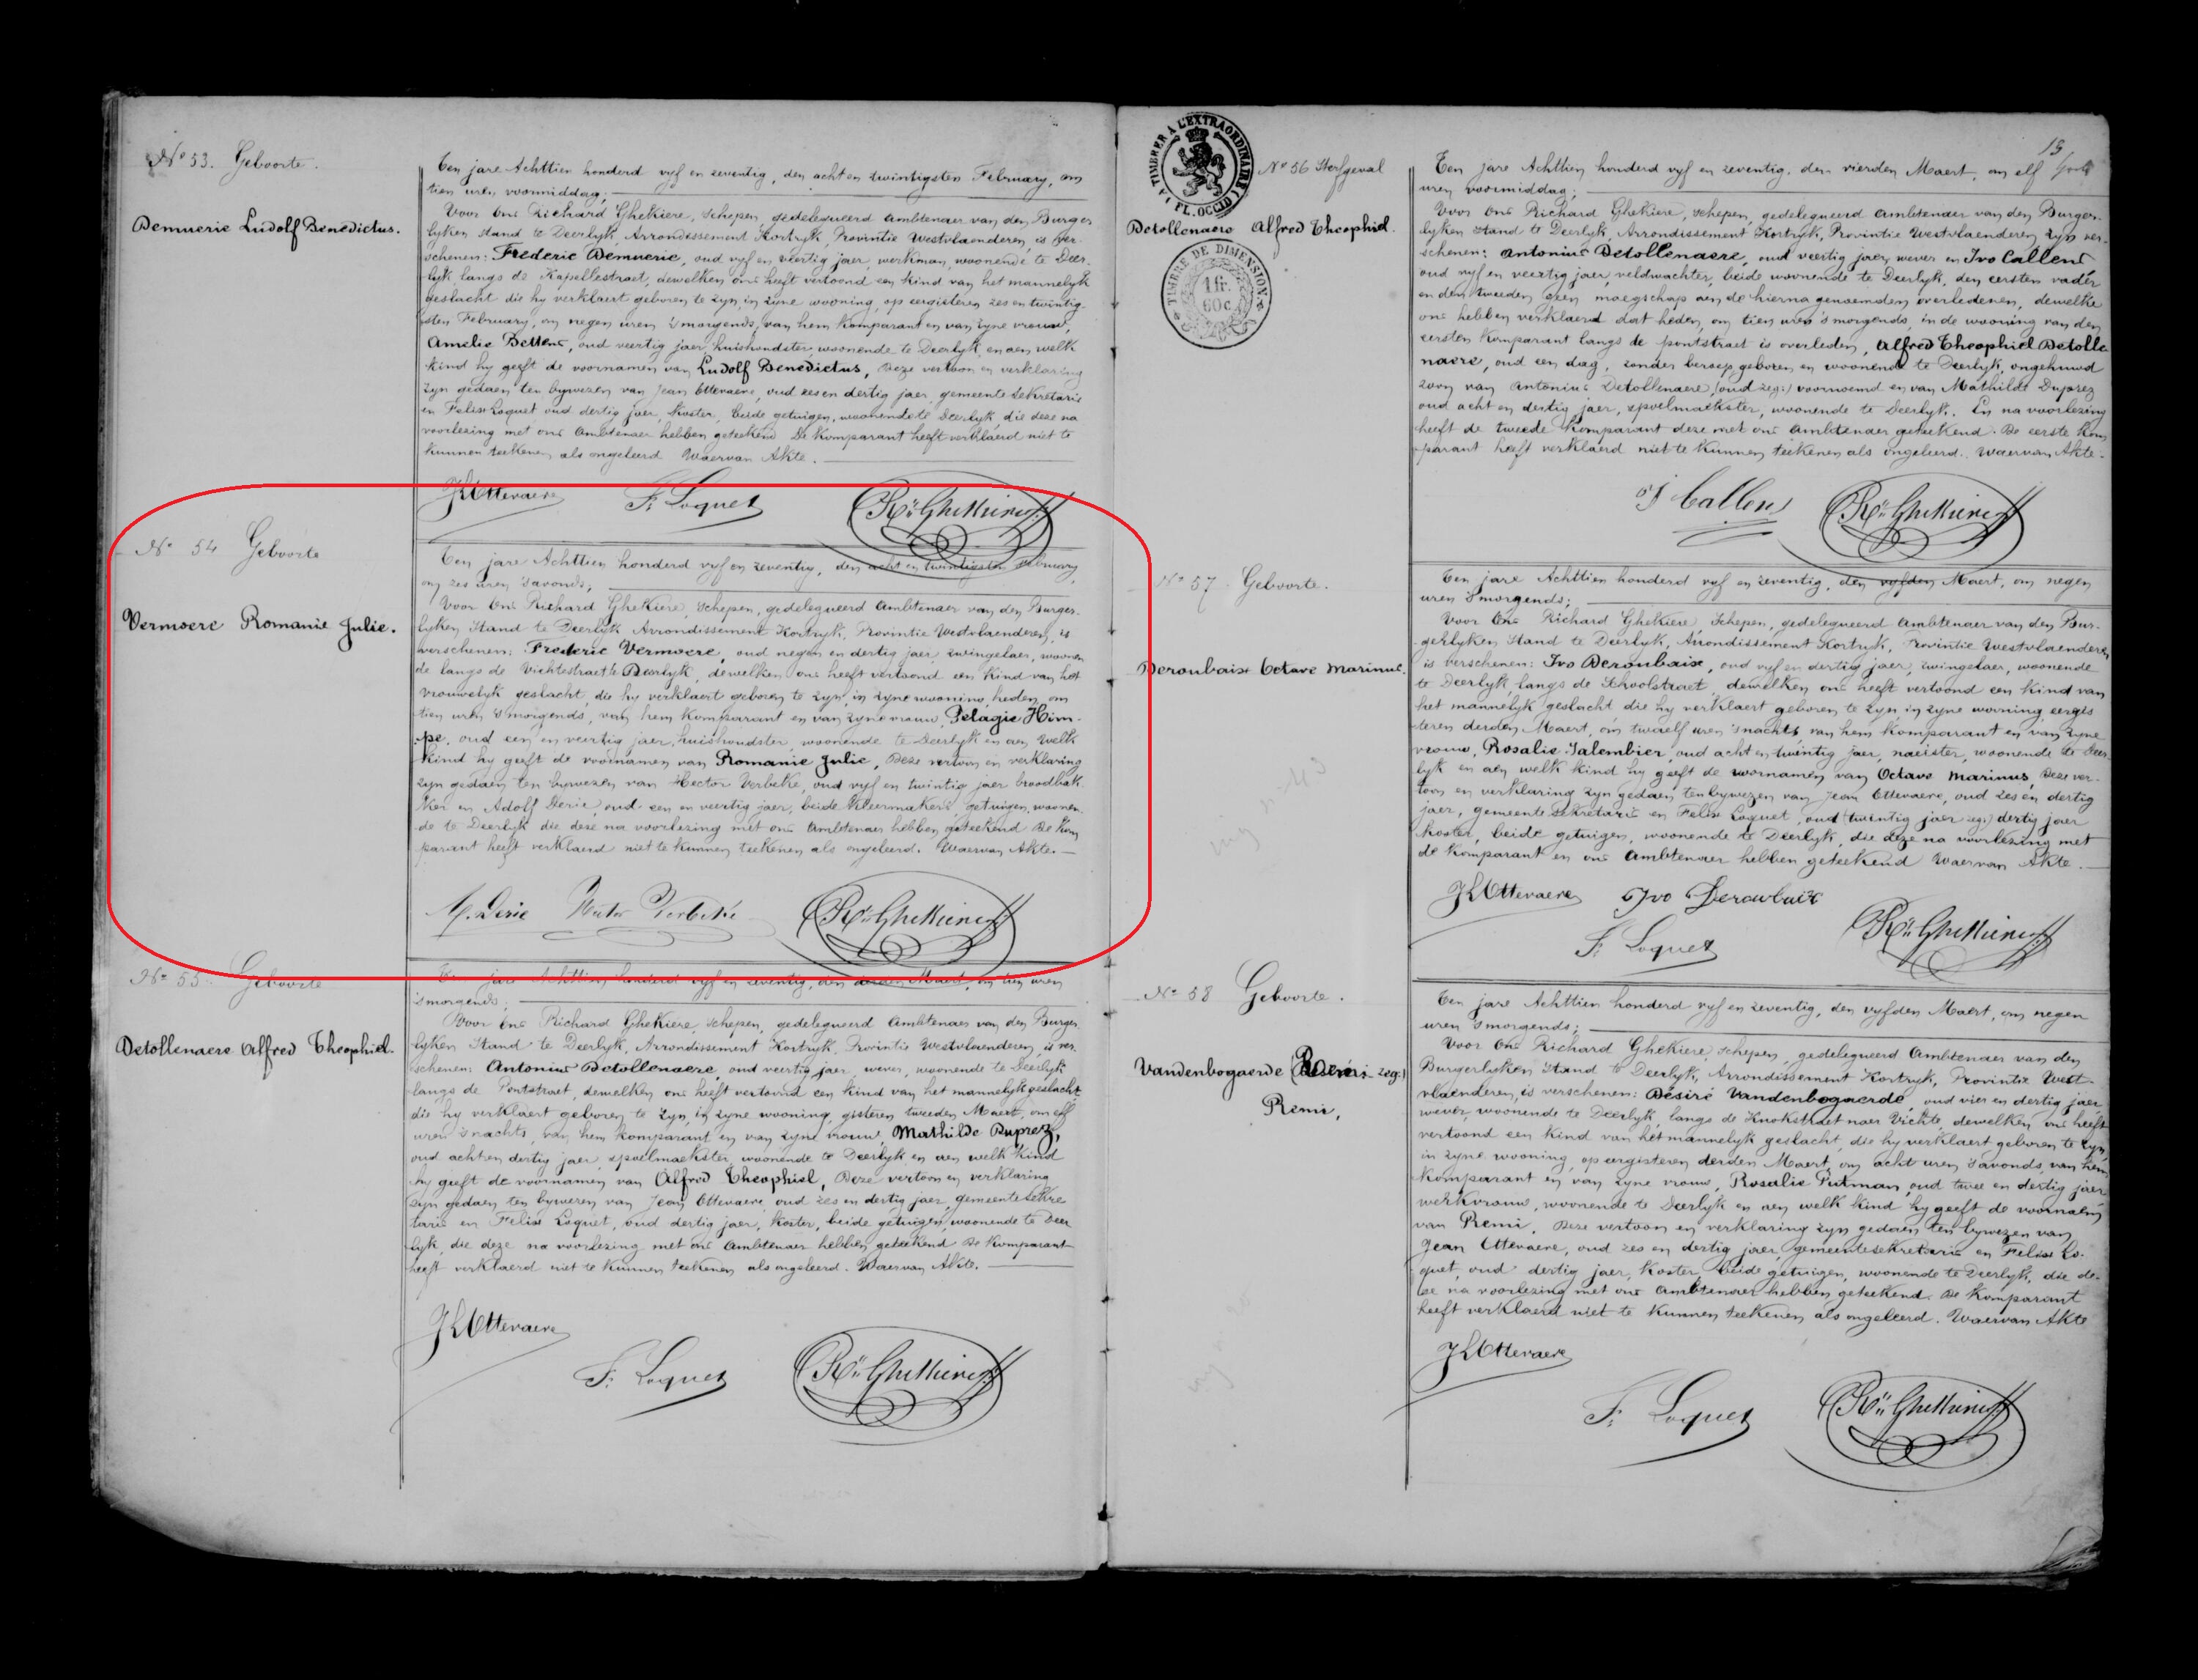 No 53. Geboorte.
Demuerie Ludolf Benedictus.
Ten jare Achttien honderd vyf en zeventig, den acht en twintigsten February, om
tien uren voormiddag;
Voor Ons Richard Ghekiere, Schepen, gedelegueerd Ambtenaer van den Burger-
lyken Stand te Deerlyk, Arrondissement Kortryk, Provintie Westvlaenderen, is ver-
schenen: Frederic Demuerie, oud vyf en veertig jaer, werkman, woonende te Deer-
lyk langs de Kapellestraet, dewelken ons heeft vertoond een kind van het mannelyk
geslacht die hy verklaert geboren te zyn, in zyne wooning, op eergisteren zes en twintig-
sten February, om negen uren 's morgends, van hem komparant en van zyne vrouw,
Amelie Bettens, oud veertig jaer, huishoudster, woonende te Deerlyk en aen welk
kind hy geeft de voornamen van Ludolf Benedictus, Deze vertoon en verklaring
zyn gedaen ten bywezen van Jean Ottevaere, oud zes en dertig jaer, gemeente Sekretaris
en Felix Loquet oud dertig jaer, Koster, beide getuigen, woonende te Deerlyk, die deze na
voorlezing met ons Ambtenaer hebben geteekend De Komparant heeft verklaerd niet te
kunnen teekenen als ongeleerd Waervan Akte.
JLOttevaere F. Loquet Rd Ghekiere
No 54 Geboorte
Vermoere Romanie Julie.
Ten jare Achttien honderd vyf en zeventig, den acht en twintigsten February,
om zes uren 's avonds;
Voor Ons Richard Ghekiere, Schepen, gedelegueerd Ambtenaer van den Burger-
lyken Stand te Deerlyk Arrondissement Kortryk, Provintie Westvlaenderen, is
verschenen: Frederic Vermoere, oud negen en dertig jaer, zwingelaer, woonen
de langs de Vichtestraet te Deerlyk, dewelken ons heeft vertoond een kind van het
vrouwelyk geslacht, die hy verklaert geboren te zyn, in zyne wooning, heden, om
tien uren 's morgends, van hem komparant en van zyne vrouw, Pelagie Him-
pe, oud een en veertig jaer, huishoudster, woonende te Deerlyk en aen welk
kind hy geeft de voornamen van Romanie Julie, Deze vertoon en verklaring
zyn gedaen ten bywezen van Hector Verbeke, oud vyf en twintig jaer broodbak-
ker en Adolf Derie, oud een en veertig jaer, beide kleermakers, getuigen, woonen-
de te Deerlyk die deze na voorlezing met ons Ambtenaer hebben geteekend De Kom
parant heeft verklaerd niet te kunnen teekenen als ongeleerd. Waervan Akte.
A. Derie Hector Verbeke Rd Ghekiere
No 55 Geboorte
Detollenaere Alfred Theophiel.
Ten jare Achttien honderd vyf en zeventig, den derden Maert, om tien uren
's morgends;
Voor Ons Richard Ghekiere, Schepen, gedelegueerd Ambtenaer van den Burger-
lyken Stand te Deerlyk, Arrondissement Kortryk, Provintie Westvlaenderen, is ver-
schenen: Antonius Detollenaere, oud veertig jaer, wever, woonende te Deerlyk
langs de Pontstraet, dewelken ons heeft vertoond een kind van het mannelyk geslacht,
die hy verklaert geboren te zyn, in zyne wooning, gisteren tweeden Maert, om elf
uren 's nachts, van hem komparant en van zyne vrouw, Mathilde Duprez,
oud acht en dertig jaer, spoelmaekster, woonende te Deerlyk en aen welk kind
hy geeft de voornamen van Alfred Theophiel, Deze vertoon en verklaring
zyn gedaen ten bywezen van Jean Ottevaere, oud zes en dertig jaer, gemeente Sekre
taris en Felix Loquet, oud dertig jaer, Koster, beide getuigen, woonende te Deer
lyk, die deze na voorlezing met ons Ambtenaer hebben geteekend De Komparant
heeft verklaerd niet te kunnen teekenen als ongeleerd. Waervan Akte.
JLOttevaere
F. Loquet Rd Ghekiere
13
TIMBRER A L'EXTRAORDINAIRE
FL. OCCID
TIMBRE DE DIMENSION
1 fr.
60 c
No 56 Sterfgeval
Detollenaere Alfred Theophiel.
Ten jare Achttien honderd vyf en zeventig, den vierden Maert, om elf
uren voormiddag;
Voor Ons Richard Ghekiere, Schepen, gedelegueerd Ambtenaer van den Burger-
lyken Stand te Deerlyk, Arrondissement Kortryk, Provintie Westvlaenderen, zyn ver-
schenen: Antonius Detollenaere, oud veertig jaer, wever en Ivo Callens
oud vyf en veertig jaer, veldwachter, beide woonende te Deerlyk, den eersten vader
en den tweeden geen maegschap aen de hierna genoemden overledenen, dewelke
ons hebben verklaerd dat heden, om tien uren 's morgends, in de wooning van den
eersten Komparant langs de pontstraet is overleden, Alfred Theophiel Detolle
naere, oud een dag, zonder beroep, geboren en woonende te Deerlyk, ongehuwd
zoon van Antonius Detollenaere, (oud zeg:) voornoemd en van Mathilde Duprez
oud acht en dertig jaer, spoelmaekster, woonende te Deerlyk. En na voorlezing
heeft de tweede Komparant deze met ons Ambtenaer geteekend. De eerste Kom
parant heeft verklaerd niet te kunnen teekenen als ongeleerd. Waervan Akte.
I Callens Rd Ghekiere
No 57. Geboorte.
Deroubaix Octave Marinus.
Ten jare Achttien honderd vyf en zeventig, den vyfden Maert, om negen
uren 's morgends;
Voor Ons Richard Ghekiere Schepen, gedelegueerd Ambtenaer van den Bur-
gerlyken Stand te Deerlyk, Arrondissement Kortryk, Provintie Westvlaenderen
is verschenen: Ivo Deroubaix, oud vyf en dertig jaer, zwingelaer, woonende
te Deerlyk, langs de Schoolstraet, dewelken ons heeft vertoond een kind van
het mannelyk geslacht die hy verklaert geboren te zyn in zyne wooning, eergis
teren derden Maert, om twaelf uren 's nachts, van hem komparant en van zyne
vrouw, Rosalie Salembier, oud acht en twintig jaer, naeister, woonende te Deer
lyk en aen welk kind hy geeft de voornamen van Octave Marinus, Deze ver-
toon en verklaring zyn gedaen ten bywezen van Jean Ottevaere, oud zes en dertig
jaer, gemeente sekretaris en Felix Loquet, oud (twintig jaer zeg:) dertig jaer
Koster, beide getuigen, woonende te Deerlyk, die deze na voorlezing met
de Komparant en ons Ambtenaer hebben geteekend Waervan Akte.
JLOttevaere Ivo Deroubaix
F. Loquet Rd Ghekiere
No 58 Geboorte.
Vandenbogaerde zeg:)
Remi,
Ten jare Achttien honderd vyf en zeventig, den vyfden Maert, om negen
uren 's morgends;
Voor Ons Richard Ghekiere, Schepen, gedelegueerd Ambtenaer van den
Burgerlyken Stand te Deerlyk, Arrondissement Kortryk, Provintie West-
vlaenderen, is verschenen: Désiré Vandenbogaerde, oud vier en dertig jaer
wever, woonende te Deerlyk, langs de Knokstraet naer Vichte, dewelken ons heeft
vertoond een kind van het mannelyk geslacht, die hy verklaert geboren te zyn,
in zyne wooning, op eergisteren derden Maert, om acht uren 's avonds, van hem
Komparant en van zyne vrouw, Rosalie Putman, oud twee en dertig jaer
werkvrouw, woonende te Deerlyk en aen welk kind hy geeft de voornamen
van Remi. Deze vertoon en verklaring zyn gedaen ten bywezen van
Jean Ottevaere, oud zes en dertig jaer, gemeentesekretaris en Felix Lo-
quet, oud dertig jaer, Koster, beide getuigen, woonende te Deerlyk, die de-
ze na voorlezing met ons Ambtenaer hebben geteekend. De Komparant
heeft verklaerd niet te kunnen teekenen als ongeleerd. Waervan Akte
JLOttevaere
F. Loquet Rd Ghekiere